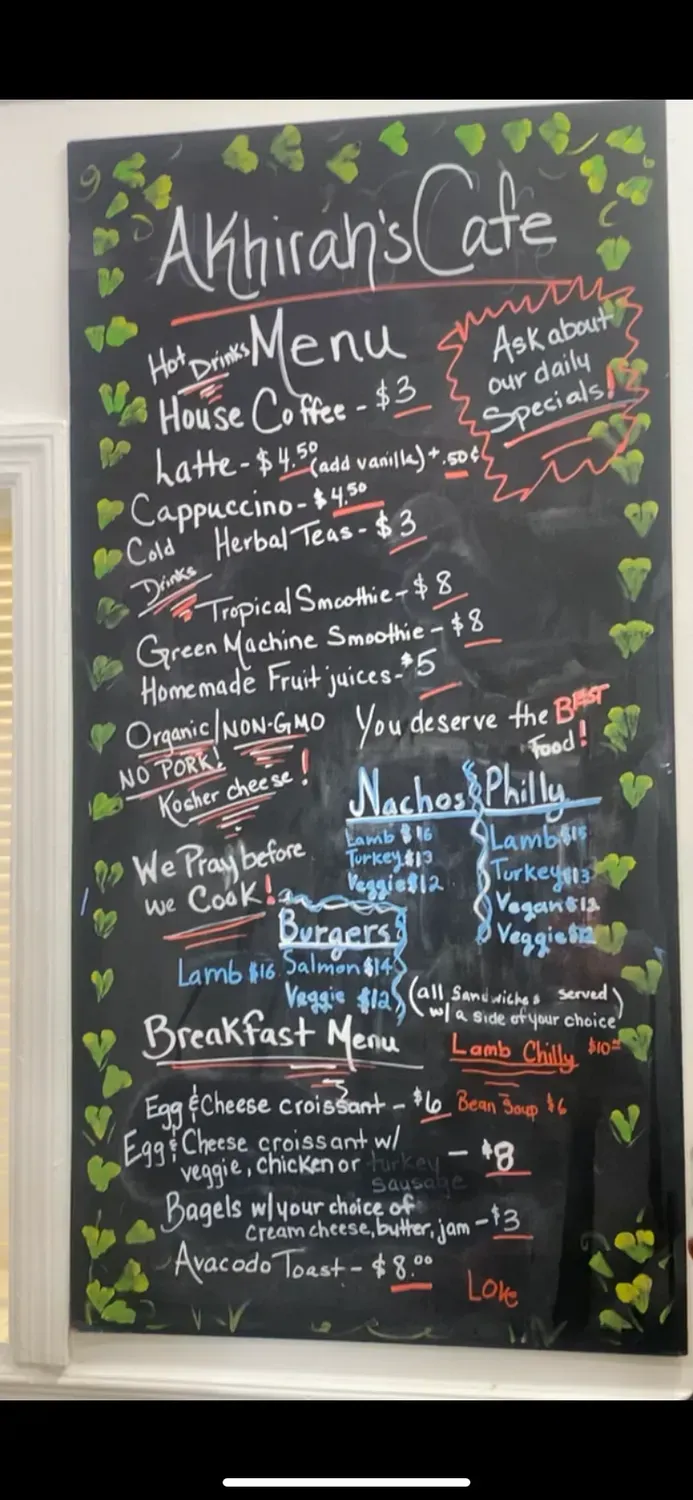 Akhirah's Cafe
Hot Drinks
Menu
Ask about
our daily
Specials!
House Coffee - $3
Latte - $4.50 (add vanilla) + .50¢
Cappuccino - $4.50
Herbal Teas - $3
Cold
Drinks
Tropical Smoothie - $8
Green Machine Smoothie - $8
Homemade Fruit juices - $5
Organic/NON-GMO
NO PORK!
Kosher cheese!
You deserve the BEST
Food!
We Pray before
we Cook!
Nachos
Lamb $16
Turkey $13
Veggie $12
Philly
Lamb $15
Turkey $13
Vegan $12
Veggie $12
Burgers
Lamb $16 Salmon $14
Veggie $12
(all Sandwiches served
w/ a side of your choice)
Breakfast Menu
Lamb Chilly $10
Bean Soup $6
Egg & Cheese croissant - $6
Egg & Cheese croissant w/
veggie, chicken or turkey
sausage
- $8
Bagels w/ your choice of
cream cheese, butter, jam - $3
Avacodo Toast - $8.00
Love